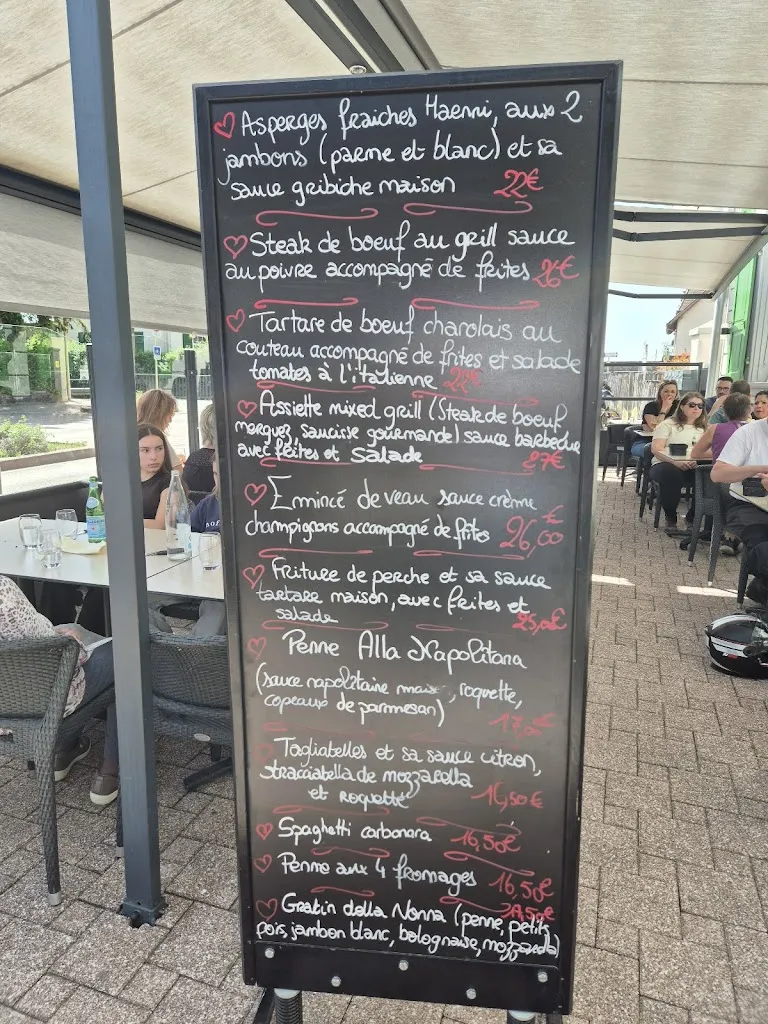 Asperges fraiches Haenni, aux 2
jambons (parme et blanc) et sa
sauce gribiche maison 22€
Steak de boeuf au grill sauce
au poivre accompagné de frites 26€
Tartare de boeuf charolais au
couteau accompagné de frites et salade
tomates à l'italienne
Assiette mixed grill (Steak de boeuf
merguez, saucisse gourmande) sauce barbecue
avec frites et salade 27€
Emincé de veau sauce crème
champignons accompagné de frites 26,00€
Friture de perche et sa sauce
tartare maison, avec frites et
salade 25,00€
Penne Alla Napolitana
(sauce napolitaine maison, roquette,
copeaux de parmesan)
Tagliatelles et sa sauce citron,
stracciatella de mozzarella
et roquette
Spaghetti carbonara 16,50€
Penne aux 4 fromages 16,50€
Gratin della Nonna (penne, petits
pois, jambon blanc, bolognaise, mozzarella)